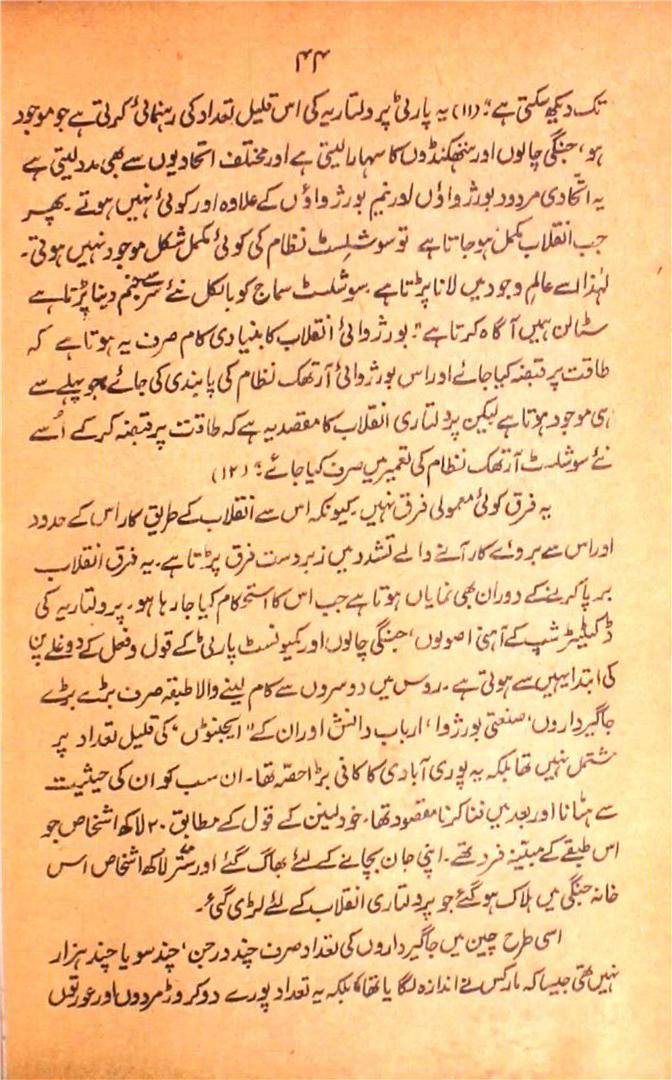 ۴۴
تک دیکھ سکتی ہے؛ (۱۱) یہ پارٹی پرولتاریہ کی اس قلیل تعداد کی رہنمائی کرتی ہے جو موجود
ہو، جنگی چالوں اور ہتھکنڈوں کا سہارا لیتی ہے اور مختلف اتحادیوں سے بھی مدد لیتی ہے
یہ اتحادی مردود بورژواؤں اور نیم بورژواؤں کے علاوہ اور کوئی نہیں ہوتے۔ پھر
جب انقلاب مکمل ہو جاتا ہے تو سوشلسٹ نظام کی کوئی مکمل شکل موجود نہیں ہوتی۔
لہٰذا اسے عالمِ وجود میں لانا پڑتا ہے۔ سوشلسٹ سماج کو بالکل نئے سرے جنم دینا پڑتا ہے
سٹالن ہمیں آگاہ کرتا ہے "بورژوائی انقلاب کا بنیادی کام صرف یہ ہوتا ہے کہ
طاقت پر قبضہ کیا جائے اور اس بورژوائی آرتھک نظام کی پابندی کی جائے جو پہلے سے
ہی موجود ہوتا ہے لیکن پرولتاری انقلاب کا مقصد یہ ہے کہ طاقت پر قبضہ کر کے اُسے
نئے سوشلسٹ آرتھک نظام کی تعمیر میں صرف کیا جائے؛ (۱۲)
یہ فرق کوئی معمولی فرق نہیں۔ کیونکہ اس سے انقلاب کے طریق کار اس کے حدود
اور اس سے بروئے کار آنے والے تشدد میں زبردست فرق پڑتا ہے۔ یہ فرق انقلاب
برپا کرنے کے دوران بھی نمایاں ہوتا ہے جب اس کا استحکام کیا جا رہا ہو۔ پرولتاریہ کی
ڈکٹیٹر شپ کے آہنی اصولوں، جنگی چالوں اور کمیونسٹ پارٹی کے قول و فعل کے دوغلے پن
کی ابتدا یہیں سے ہوتی ہے۔ روس میں دوسروں سے کام لینے والا طبقہ صرف بڑے بڑے
جاگیرداروں، صنعتی بورژوا، ارباب دانش اور ان کے "ایجنٹوں" کی قلیل تعداد پر
مشتمل نہیں تھا بلکہ یہ پوری آبادی کا کافی بڑا حصّہ تھا۔ ان سب کو ان کی حیثیت
سے ہٹانا اور بعد میں فنا کرنا مقصود تھا۔ خود لینن کے قول کے مطابق ۲۰ لاکھ اشخاص جو
اس طبقے کے مبیّنہ فرد تھے۔ اپنی جان بچانے کے لئے بھاگ گئے اور ستر لاکھ اشخاص اس
خانہ جنگی میں ہلاک ہو گئے جو پرولتاری انقلاب کے لئے لڑی گئی۔
اسی طرح چین میں جاگیرداروں کی تعداد صرف چند درجن، چند سو یا چند ہزار
نہیں تھی جیسا کہ مارکس نے اندازہ لگایا تھا بلکہ یہ تعداد پورے دو کروڑ مردوں اور عورتوں